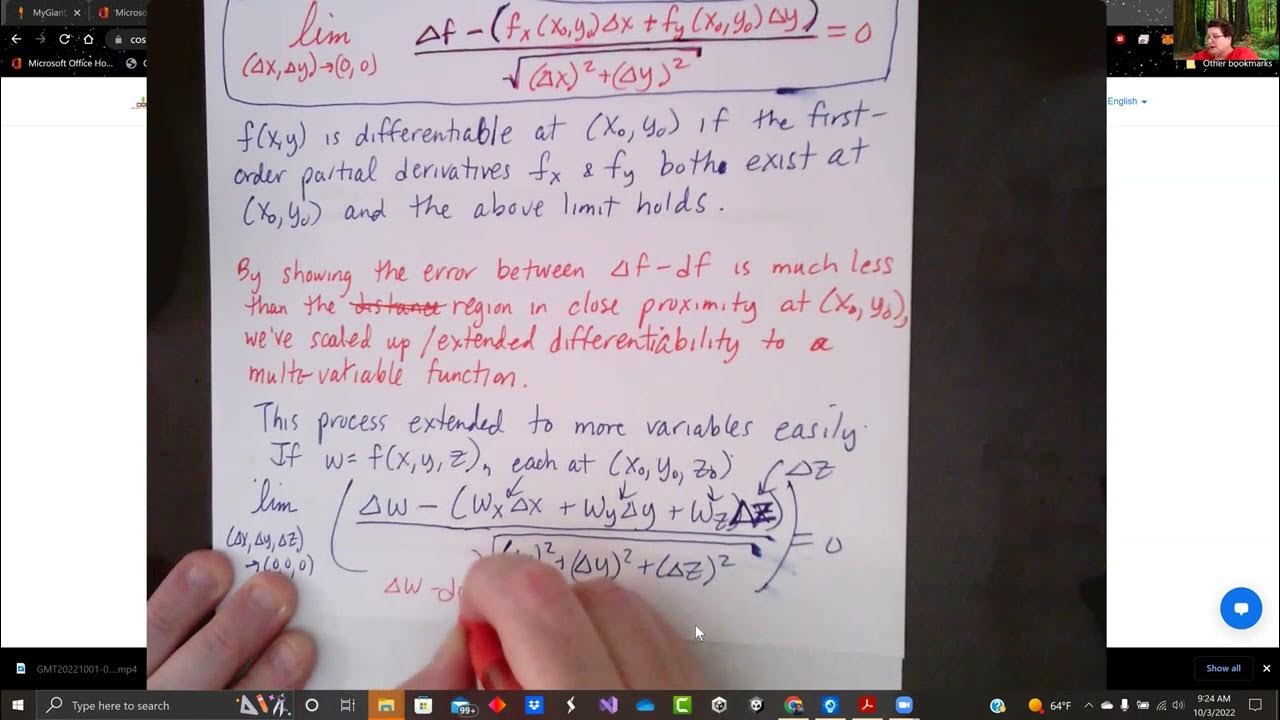 MyGiant
'Microsof
cos
Microsoft Office Ho...
Other bookmarks
English
lim Δf - (fx(x0,y0)Δx + fy(x0,y0)Δy) = 0
(Δx,Δy)→(0,0) √(Δx)²+(Δy)²
f(x,y) is differentiable at (x0,y0) if the first-
order partial derivatives fx & fy both exist at
(x0,y0) and the above limit holds.
By showing the error between Δf-df is much less
than the distance region in close proximity at (x0,y0),
we've scaled up/extended differentiability to a
multi-variable function.
This process extended to more variables easily.
If w=f(x,y,z), each at (x0,y0,z0) ΔZ
lim (Δw - (wxΔx + wyΔy + wzΔz)) = 0
(Δx,Δy,Δz)→(0,0,0) )²+(Δy)²+(Δz)²
Δw-d
GMT20221001-0....mp4
Show all
Type here to search
99+
64°F
9:24 AM
10/3/2022